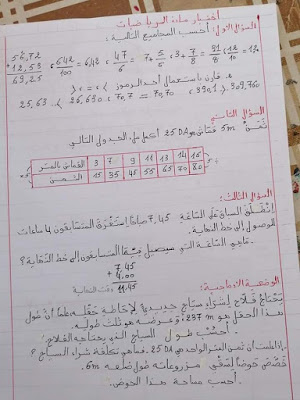 اختبار مادة الرياضيات
السؤال الأول: أحسب المجاميع التالية:
54,72
+ 12,53
69,25
642/100 = 6,42
47/6 = 7 + 5/6
قارن باستعمال أحد الرموز > ، < ، =
25,63 < 26,630 ، 70,7 = 70,70
السؤال الثاني
ثمن 5m قماش هو 25 DA أكمل الجدول التالي
القماش بالمتر 3 7 9 11 13 14 16
الثمن 15 35 45 55 65 70 80
السؤال الثالث:
إنطلق السباق على الساعة 7,45 صباحا استغرق المتسابقون 4 ساعات
للوصول إلى خط النهاية.
ماهي الساعة التي سيصل فيها المتسابقون إلى خط النهاية؟
7,45
+ 4,00
11,45
الوضعية الإدماجية:
يحتاج فلاح لشراء سياج جديد لإحاطة حقله علما أن طول
هذا الحقل هو 237 m وعرضه هو ثلث طوله.
أحسب طول السياج الذي يحتاجه الفلاح.
إذا علمت أن ثمن المتر الواحد هو 25 DA فما هي تكلفة شراء السياج؟
خصص حوضا لسقي مزروعاته طول ضلعه 6m
أحسب مساحة هذا الحوض.